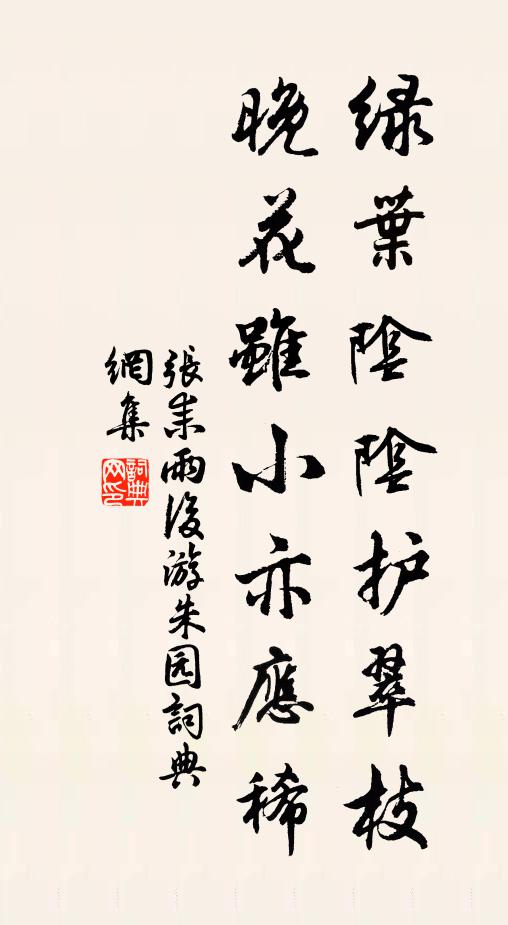 绿葉陰陰护翠枝
晚花雖小亦應稀
張耒雨後游朱园詞典
網集
詞典
网印